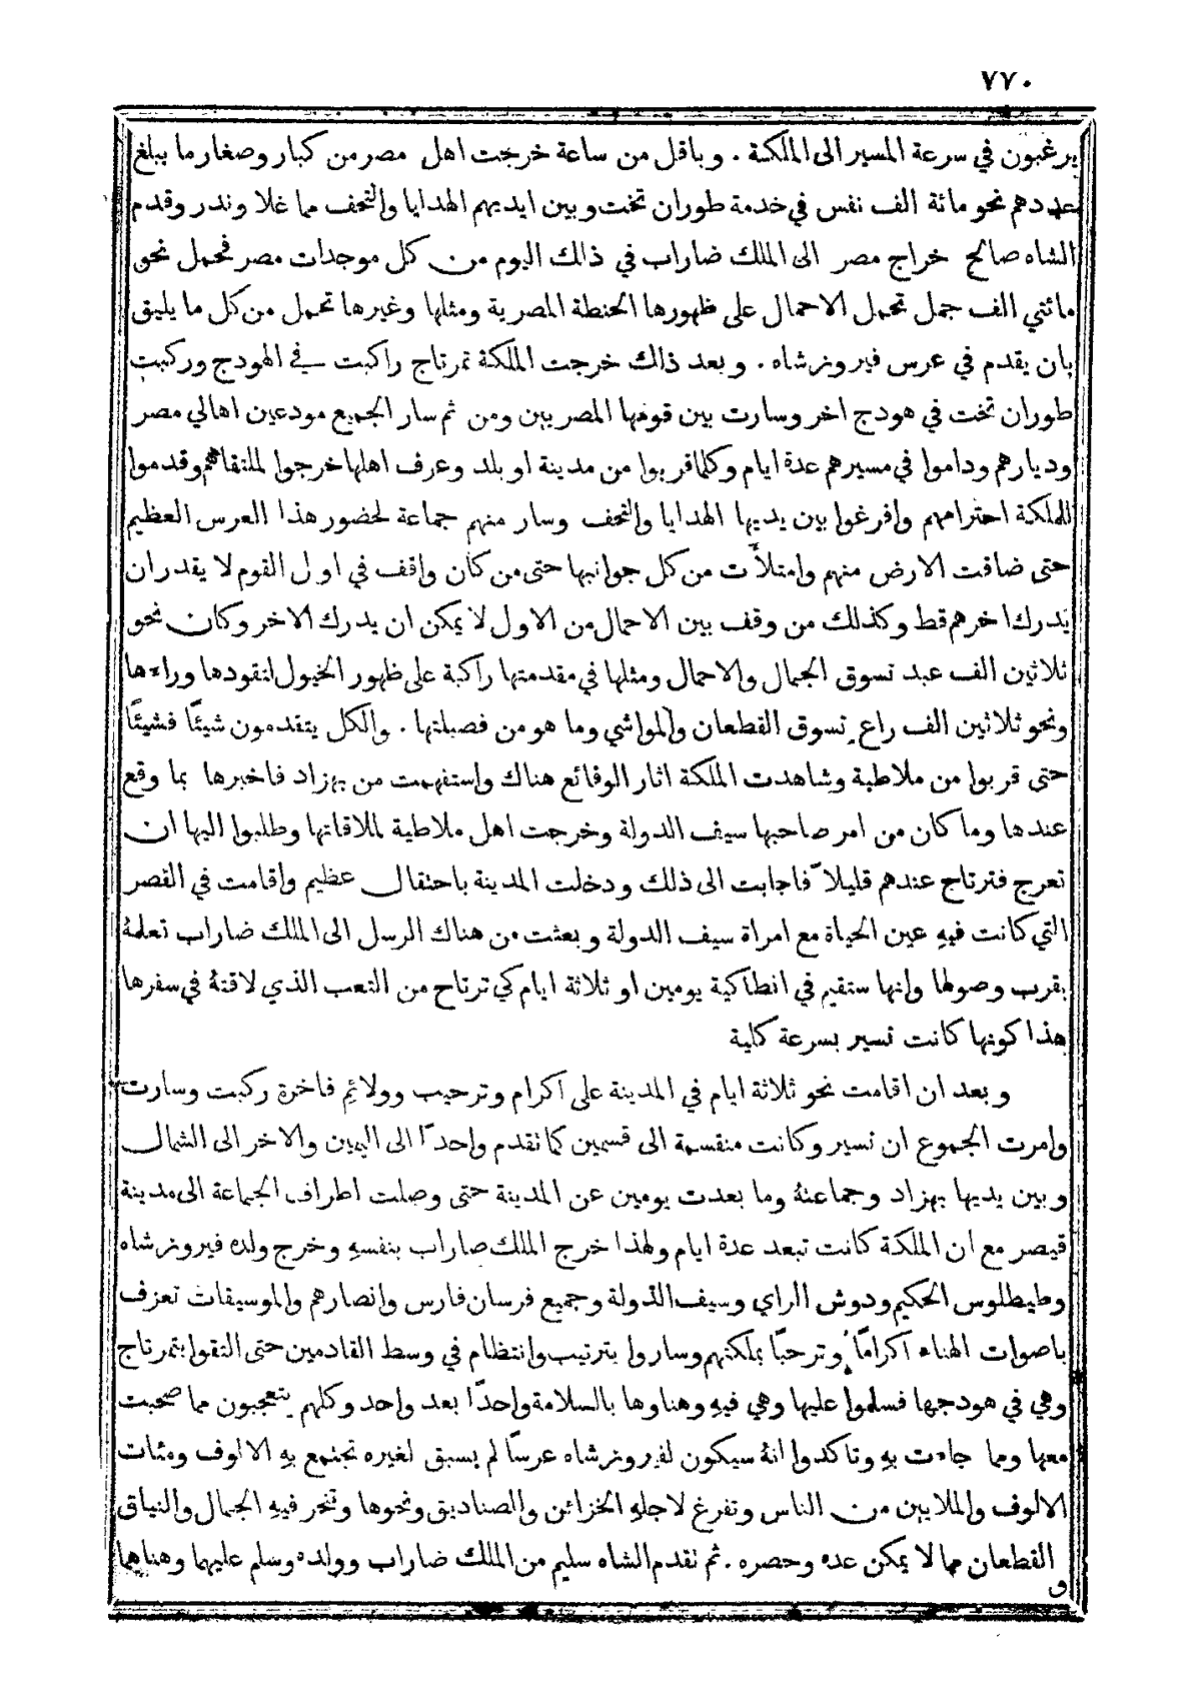 ٧٧٠
يرغبون في سرعة المسير الى المالكة . وباقل من ساعة خرجت اهل مصر من كبار وصغار ما يبلغ
عددهم نحو مائة الف نفس في خدمة طوران تخت وبين ايديهم الهدايا والتحف مما غلا وندر وقدم
الشاه صالح خراج مصر الى الملك ضاراب في ذالك اليوم من كل موجدات مصر فحمل نحو
مائتي الف جمل تحمل الاحمال على ظهورها الحنطة المصرية ومثلها وغيرها تحمل من كل ما يليق
بان يقدم في عرس فيروزشاه . وبعد ذالك خرجت الملكة تمرتاج راكبت في الهودج وركبت
طوران تخت في هودج اخر وسارت بين قومها المصريين ومن ثم سار الجميع مودعين اهالي مصر
وديارهم وداموا في مسيرهم عدة ايام وكلما قربوا من مدينة او بلد وعرف اهلها خرجوا لملتقاهم وقدموا
للملكة احترامهم وافرغوا بين يديها الهدايا والتحف وسار منهم جماعة لحضور هذا العرس العظيم
حتى ضاقت الارض منهم وامتلأت من كل جوانبها حتى من كان واقف في اول القوم لا يقدر ان
يدرك اخرهم قط وكذلك من وقف بين الاحمال من الاول لا يمكن ان يدرك الاخر وكان نحو
ثلاثين الف عبد تسوق الجمال والاحمال ومثلها في مقدمتها راكبة على ظهور الخيول لتقودها وراءها
ونحو ثلاثين الف راعٍ تسوق القطعان والمواشي وما هو من فصيلتها . والكل يتقدمون شيئًا فشيئًا
حتى قربوا من ملاطية وشاهدت الملكة اثار الوقائع هناك واستفهمت من بهزاد فاخبرها بما وقع
عندها وما كان من امر صاحبها سيف الدولة وخرجت اهل ملاطية لملاقاتها وطلبوا اليها ان
تعرج فترتاح عندهم قليلاً فاجابت الى ذلك ودخلت المدينة باحتفال عظيم واقامت في القصر
التي كانت فيهِ عين الحياة مع امراة سيف الدولة وبعثت من هناك الرسل الى الملك ضاراب تعلمهُ
بقرب وصولها وانها ستقيم في انطاكية يومين او ثلاثة ايام كي ترتاح من التعب الذي لاقتهُ في سفرها
هذا كونها كانت تسير بسرعة كلية
وبعد ان اقامت نحو ثلاثة ايام في المدينة على اكرام وترحيب وولائم فاخرة ركبت وسارت
وامرت الجموع ان تسير وكانت منقسمة الى قسمين كما تقدم واحدًا الى اليمين والاخر الى الشمال
وبين يديها بهزاد وجماعتهُ وما بعدت يومين عن المدينة حتى وصلت اطراف الجماعة الى مدينة
قيصر مع ان الملكة كانت تبعد عدة ايام ولهذا خرج الملك ضاراب بنفسهِ وخرج ولده فيروزشاه
وطيطلوس الحكيم ودوش الراي وسيف الدولة وجميع فرسان فارس وانصارهم والموسيقات تعزف
باصوات الهناء اكرامًا وترحبًا بملكتهم وساروا بترتيب وانتظام في وسط القادمين حتى التقوا بتمرتاج
وهي في هودجها فسلموا عليها وهي فيهِ وهناوها بالسلامة واحدًا بعد واحد وكلهم يتعجبون مما صحبت
معها ومما جاءت بهِ وتاكدوا انهُ سيكون لفيروزشاه عرسًا لم يسبق لغيره تجتمع بهِ الالوف ومئات
الالوف والملايين من الناس وتفرغ لاجلهِ الخزائن والصناديق ونحوها وتنحر فيهِ الجمال والنياق
القطعان مما لا يمكن عده وحصره . ثم تقدم الشاه سليم من الملك ضاراب وولده وسلم عليهما وهناهما
و